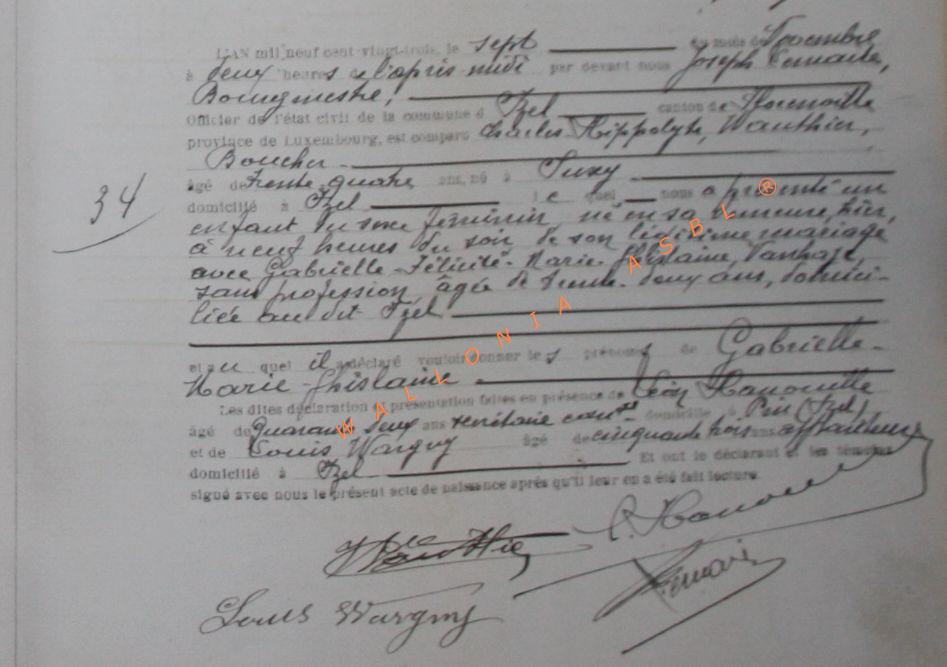 L'AN mil neuf cent vingt-trois, le sept du mois de Novembre
à deux heures de l'après midi par devant nous Joseph Lemaire,
Bourgmestre,
Officier de l'état civil de la commune d'Izel canton de Florenville
province de Luxembourg, est comparu Charles Hippolyte, Wauthier,
Boucher
34
âgé de trente-quatre ans, né à Suxy
domicilié à Izel lequel nous a présenté un
enfant du sexe féminin, né en sa demeure, hier,
à neuf heures du soir de son légitime mariage
avec Gabrielle-Félicité-Marie-Ghislaine,
sans profession âgée de trente-deux ans, domici-
liée au dit Izel
et auquel il a déclaré vouloir donner les prénoms de Gabrielle-
Marie-Ghislaine
Les dites déclaration et présentation faites en présence de Léon Hanouille
âgé de quarante deux ans secrétaire comal domicilié à Pin Izel,
et de Louis Wargny âgé de cinquante trois ans
domicilié à Izel Et ont le déclarant et les témoins
signé avec nous le présent acte de naissance après qu'il leur en a été fait lecture.
Wauthier
Lemaire
Louis Wargny
WALLONIA ASBL ®